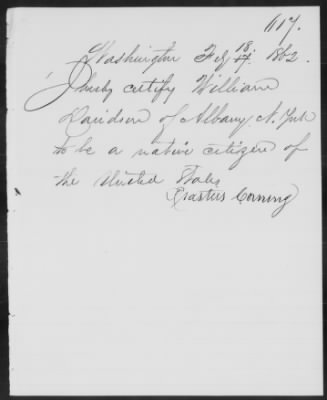 617.
Washington Feby 18 17. 1862.
I hereby certify William
Davidson of Albany N. York
to be a native citizen of
the United States
Erastus Corning